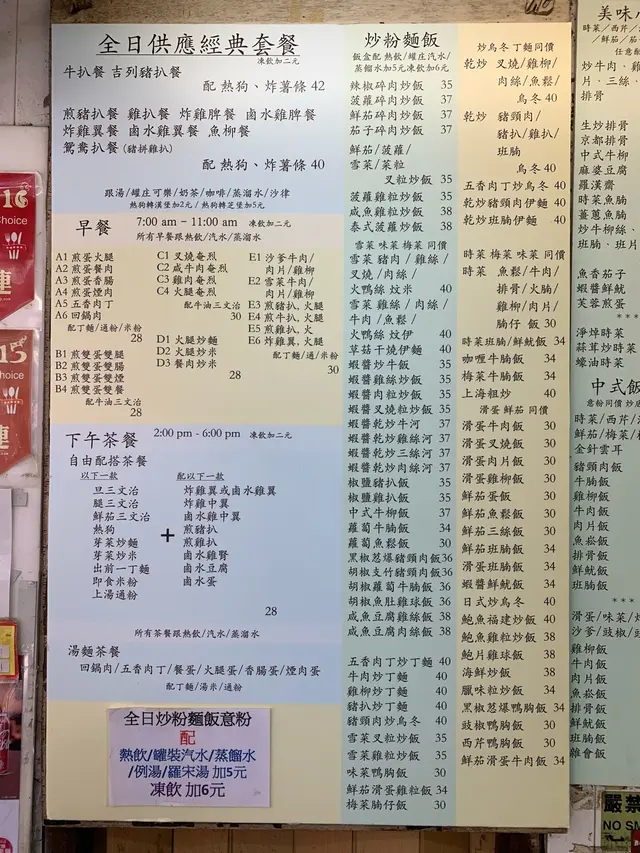 全日供應經典套餐
凍飲加二元
牛扒餐 吉列豬扒餐
配 熱狗、炸薯條 42
煎豬扒餐 雞扒餐 炸雞脾餐 鹵水雞脾餐
炸雞翼餐 鹵水雞翼餐 魚柳餐
鴛鴦扒餐 (豬拼雞扒)
配 熱狗、炸薯條 40
跟湯/罐庄可樂/奶茶/咖啡/蒸溜水/沙律
熱狗轉漢堡加2元/熱狗轉芝堡加5元
早餐 7:00 am – 11:00 am 凍飲加二元
所有早餐跟熱飲/汽水/蒸溜水
A1 煎蛋火腿
A2 煎蛋餐肉
A3 煎蛋香腸
A4 煎蛋煙肉
A5 五香肉丁
A6 回鍋肉
配丁麵/通粉/米粉
28
B1 煎雙蛋雙腿
B2 煎雙蛋雙腸
B3 煎雙蛋雙煙
B4 煎雙蛋雙餐
配牛油三文治
28
C1 叉燒奄烈
C2 咸牛肉奄烈
C3 雞肉奄烈
C4 火腿奄烈
配牛油三文治
30
D1 火腿炒麵
D2 火腿炒米
D3 餐肉炒米
28
E1 沙爹牛肉/
肉片/雞柳
E2 雪菜牛肉/
肉片/雞柳
E3 煎豬扒, 火腿
E4 煎牛扒, 火腿
E5 煎雞扒, 火
E6 炸雞翼, 火腿
配丁麵/通/米粉
30
下午茶餐 2:00 pm - 6:00 pm 凍飲加二元
自由配搭茶餐
以下一款
旦三文治
腿三文治
鮮茄三文治
熱狗
芽菜炒麵
芽菜炒米
出前一丁麵
即食米粉
上湯通粉
+
配以下一款
炸雞翼或鹵水雞翼
炸雞中翼
鹵水雞中翼
煎豬扒
煎雞扒
鹵水雞腎
鹵水豆腐
鹵水蛋
28
所有茶餐跟熱飲/汽水/蒸溜水
湯麵茶餐
回鍋肉/五香肉丁/餐蛋/火腿蛋/香腸蛋/煙肉蛋
配丁麵/湯米/通粉
全日炒粉麵飯意粉
配
熱飲/罐裝汽水/蒸餾水
/例湯/羅宋湯 加5元
凍飲 加6元
炒粉麵飯
飯盒配 熱飲/罐庄汽水/
蒸餾水加5元凍飲加6元
辣椒碎肉炒飯 35
菠蘿碎肉炒飯 37
鮮茄碎肉炒飯 37
茄子碎肉炒飯 37
鮮茄/菠蘿/
雪菜/菜粒
叉粒炒飯 35
菠蘿雞粒炒飯 35
咸魚雞粒炒飯 38
泰式菠蘿炒飯 38
雪菜 味菜 梅菜 同價
雪菜 豬肉 / 雞絲/
叉燒 /肉絲/
火鴨絲 炆米 40
雪菜 雞絲 / 肉絲 /
牛肉 /魚鬆 /
火鴨絲 炆伊 40
草菇干燒伊麵 40
蝦醬炒牛飯 35
蝦醬雞絲炒飯 35
蝦醬肉粒炒飯 35
蝦醬叉燒粒炒飯 35
蝦醬乾炒牛河 37
蝦醬乾炒雞絲河 37
蝦醬乾炒三絲河 37
蝦醬乾炒肉絲河 37
椒鹽豬扒飯 35
椒鹽雞扒飯 35
中式牛柳飯 37
蘿蔔牛腩飯 34
蘿蔔魚鬆飯 30
黑椒葱爆豬頸肉飯36
胡椒支竹豬頸肉飯36
胡椒蘿蔔牛腩飯 36
胡椒魚肚雞球飯 36
咸魚豆腐雞絲飯 38
咸魚豆腐肉絲飯 38
五香肉丁炒丁麵 40
牛肉炒丁麵 40
雞柳炒丁麵 40
豬扒炒丁麵 40
豬頸肉炒烏冬 40
雪菜叉粒炒飯 35
雪菜雞粒炒飯 35
味菜鴨胸飯 30
鮮茄滑蛋雞粒飯 34
梅菜腩仔飯 30
炒烏冬丁麵同價
乾炒 叉燒/雞柳/
肉絲/魚鬆/
烏冬 40
乾炒 豬頸肉/
豬扒/雞扒/
班腩
烏冬 40
五香肉丁炒烏冬 40
乾炒豬頸肉伊麵 40
乾炒班腩伊麵 40
時菜 梅菜 味菜 同價
時菜 魚鬆/牛肉/
排骨/火腩/
雞柳/肉片/
腩仔 飯 30
時菜班腩/鮮魷飯 34
咖喱牛腩飯 34
梅菜牛腩飯 34
上海粗炒 40
滑蛋 鮮茄 同價
滑蛋牛肉飯 30
滑蛋叉燒飯 30
滑蛋肉片飯 30
滑蛋雞柳飯 30
鮮茄蛋飯 30
鮮茄魚鬆飯 30
鮮茄三絲飯 30
鮮茄班腩飯 34
滑蛋班腩飯 34
蝦醬鮮魷飯 34
日式炒烏冬 40
鮑魚福建炒飯 40
鮑魚雞粒炒飯 38
鮑片雞球飯 38
海鮮炒飯 38
臘味粒炒飯 34
黑椒葱爆鴨胸飯 34
豉椒鴨胸飯 30
西芹鴨胸飯 30
鮮茄滑蛋牛肉飯 34
時菜/西芹/
炒牛肉．雞
片．三絲．
排骨
生炒排骨
京都排骨
中式牛柳
麻婆豆腐
羅漢齋
時菜魚腩
薑蔥魚腩
炒牛柳絲．
班腩．班片
魚香茄子
蝦醬鮮魷
芙蓉煎蛋
***
淨焯時菜
蒜茸炒時菜
蠔油時菜
中式飯
時菜/西芹/
鮮茄/梅菜/
金針雲耳
豬頸肉飯
牛腩飯
雞柳飯
牛肉飯
肉片飯
魚崧飯
排骨飯
鮮魷飯
班腩飯
***
滑蛋/味菜/
沙爹/豉椒/
雞柳飯
牛肉飯
肉片飯
魚崧飯
排骨飯
鮮魷飯
班腩飯
雜會飯
嚴禁
NO SM
Choice
15
Choice